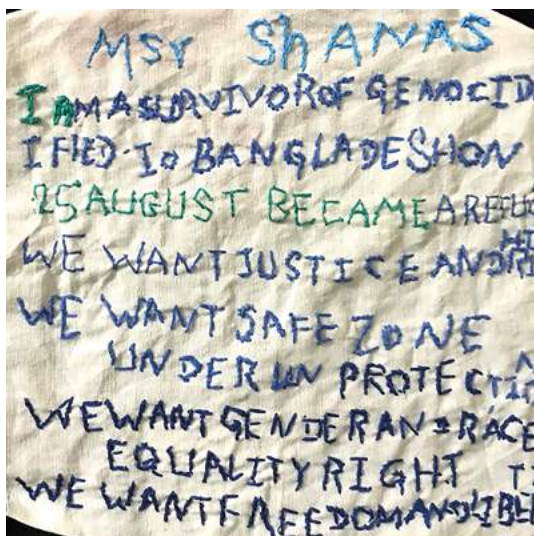 MSY ShANAS
I AM A SURVIVOR OF GENOCID
I FlED TO BANGLADESH ON
25 AUGUST BECAME A REFUG
WE WANT JUSTICE AND
WE WANT SAFE ZONE
UNDER UN PROTECTIO
WE WANT GENDER AND RACE
EQUALITY RIGHT
WE WANT FREEDOM AND LIBE